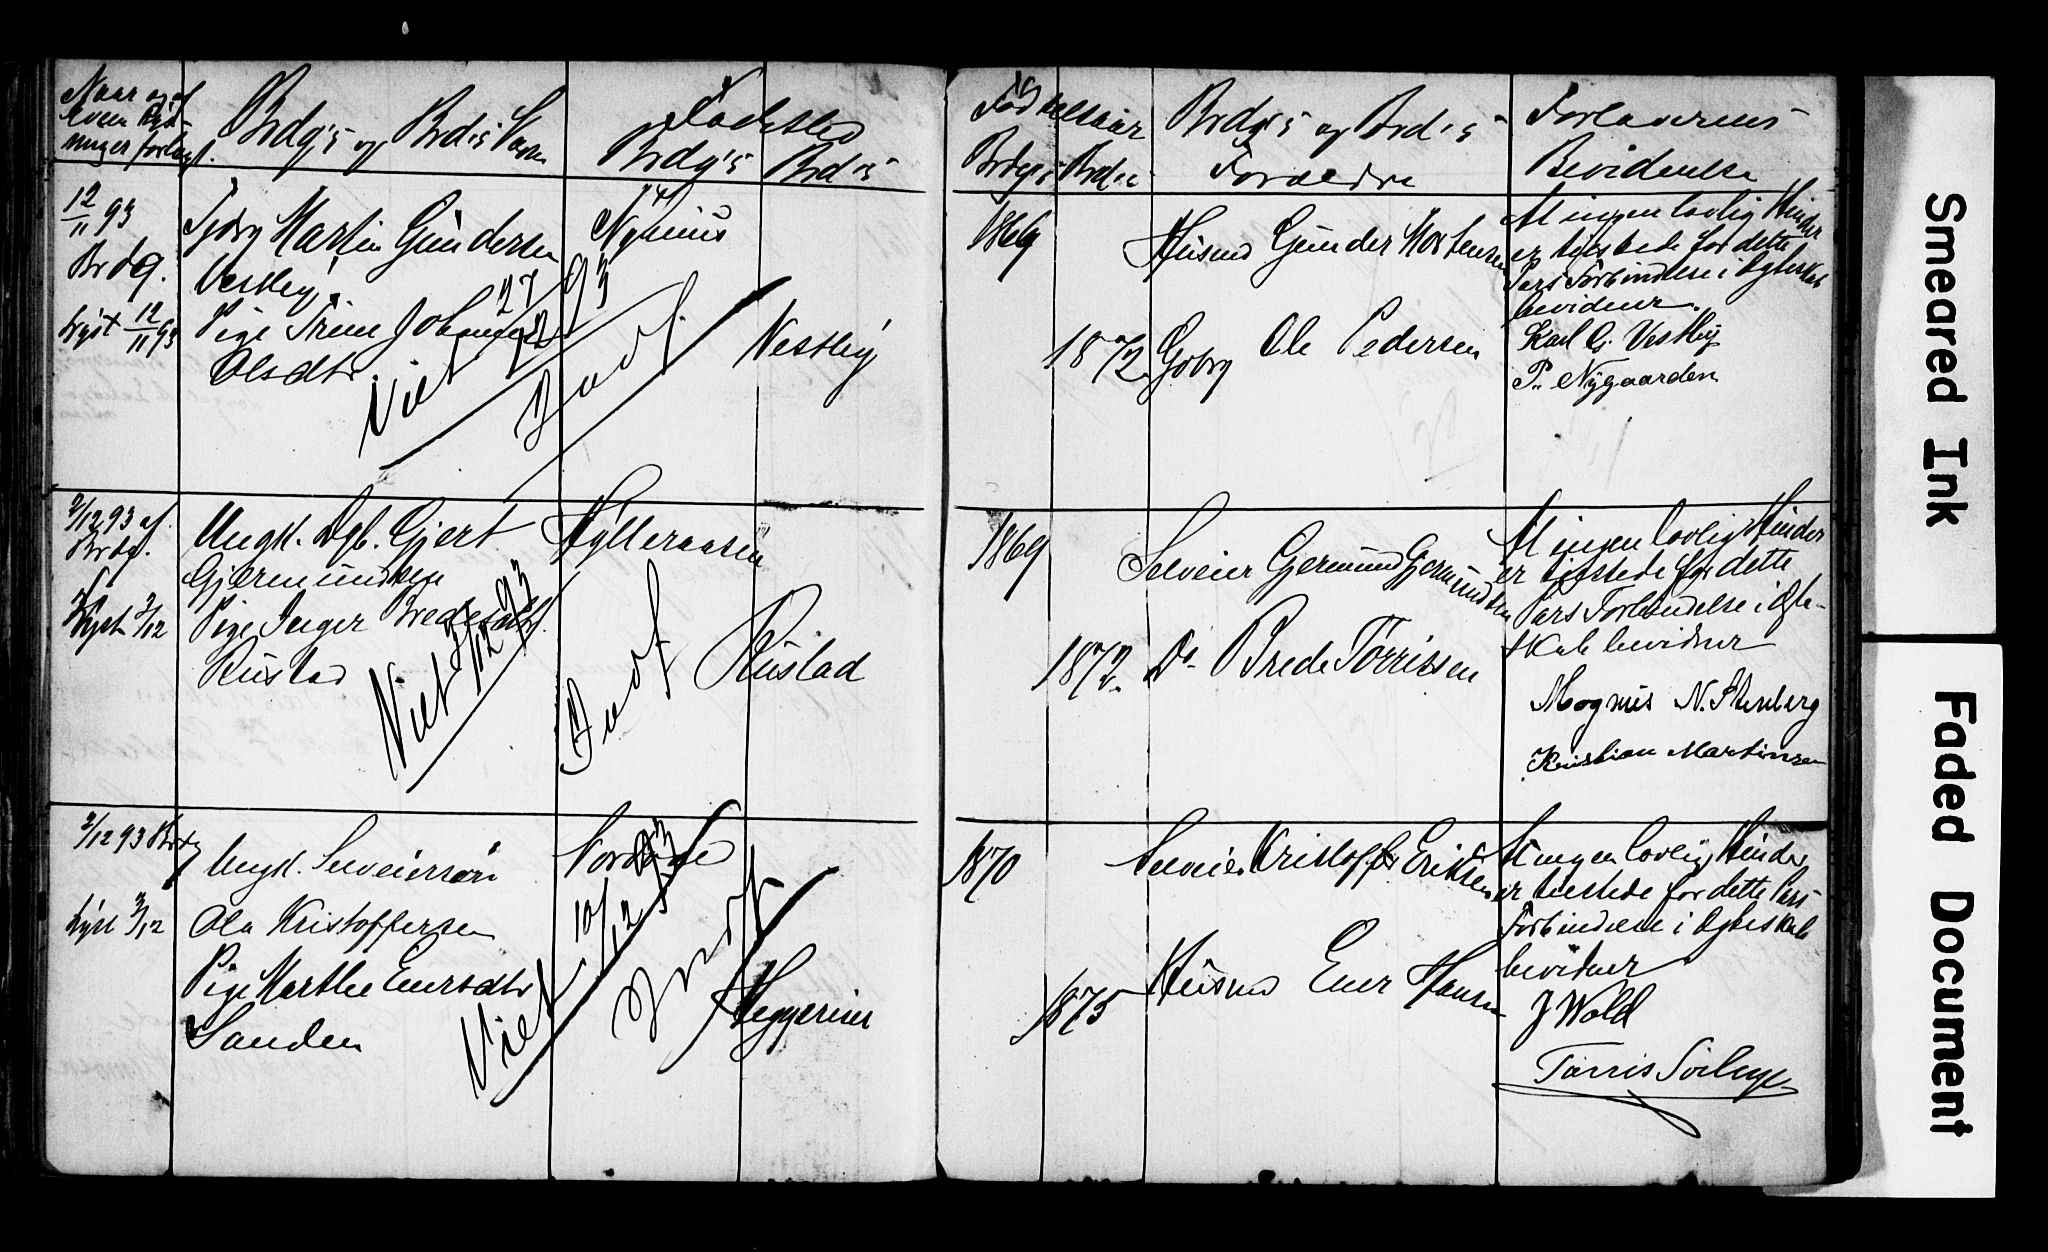 Naar og af
hvem
ninger forlagt.
Brdg's og Brd's Navn
Fødested
Brdg's
Brd's
Fødselsaar
Brdg's
Brd's
Brdg's og Brd's
Forældre
Forloverens
Bevidnelse
12/11 93
Brdg.
Lyst 12/11 93
Martin Gundersen
Vestby
Pige Trine
Olsdtr.
Viet 27/12 93
Vestby
1869
1872
Husmd Gunder Mortensen
Gbrg Ole Pedersen
At ingen lovlig Hinder
er tilstede for dette
Pars Forbindelse i Ægteskab
bevidner
Karl G. Vestby
P. Nygaarden
3/12 93 af
Brdg.
Lyst 3/12
Ungk. Dgb. Gjert
Gjermundsen
Pige Inger Bredesdtr.
Rustad
Viet /12 93
Hylleraasen
Rustad
1869
1872
Selveier Gjermund Gjermundsen
Do Brede Tørrissen
At ingen lovlig Hinder
er tilstede for dette
Pars Forbindelse i Ægte-
skab bevidner
Magnus N. Stenberg
Kristian Martinsen
3/12 93 Brdg
Lyst 3/12
Ungk. Selveiersøn
Ola Kristoffersen
Pige Marthe
Sanden
Viet 10/12 93
1870
1875
Selveier Kristoffer Eriksen
Husmd Hansen
At ingen lovlig Hinder
er tilstede for dette Pars
Forbindelse i Ægteskab
bevidner
J Wold
Smeared Ink
Faded Document